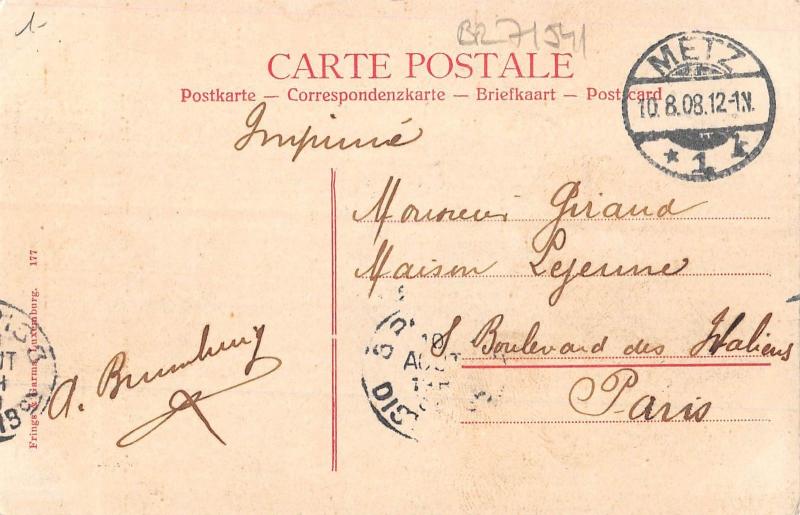 BR 71541
CARTE POSTALE
Postkarte — Correspondenzkarte — Briefkaart — Post card
METZ
10.8.08.12-1N.
* 1 *
Imprimé
Monsieur Giraud
Maison Lejeune
Boulevard des Italiens
Paris
AOUT
A.
Frings & Garms, Luxemburg. 177